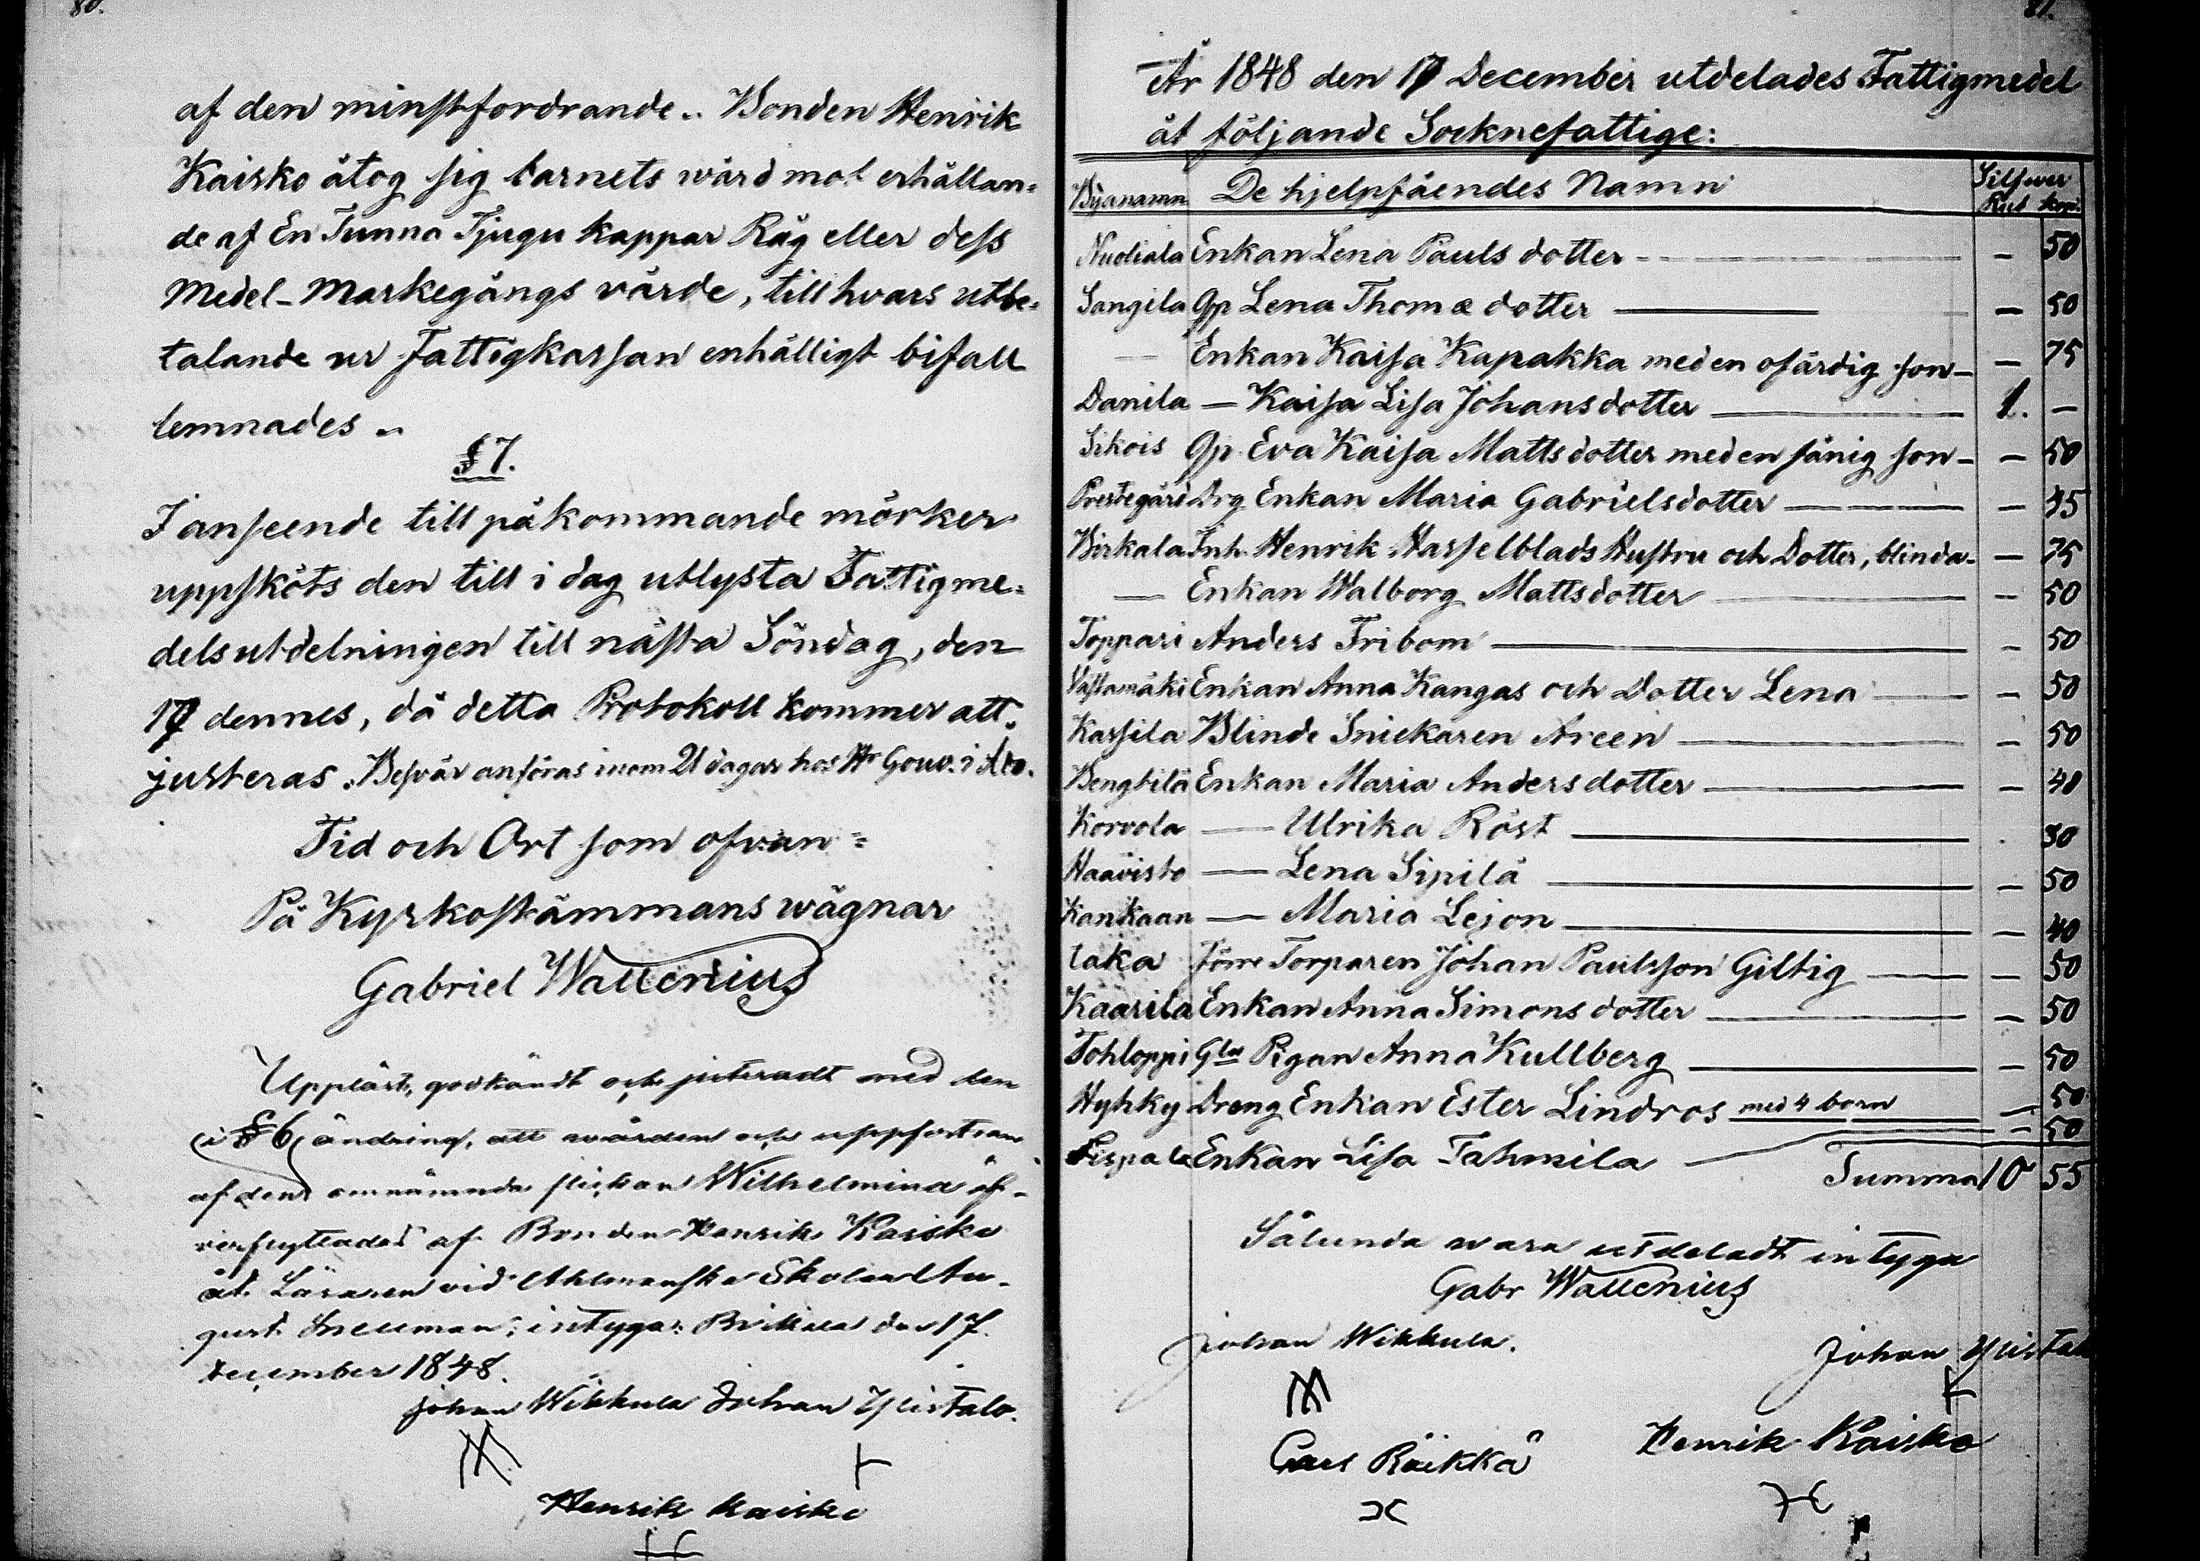 80.
af den minstfordrande.. Bonden Henrik
Kaisko åtog sig barnets wård mot erhållan=
de af En Tunna Tjugu kappar Råg eller dess
Medel-Markegångs värde, till hvars utbe=
talande ur Fattigkassan enhälligt bifall
lemnades ..
§ 7.
I anseende till påkommande mörker
uppsköts den till i dag utlysta Fattigme=
delsutdelningen till nästa Söndag, den
17 dennes, då detta Protokoll kommer att
justeras. Besvär anföras inom 21 dagar hos Hr Gouv. i
Tid och Ort som ofvan =
På Kyrkostämmans wägnar
Gabriel Wallenius
Uppläst, godkändt och justeradt med den
i § 6 ändring, att wården och uppfostran
af den omnämnda flickan Wilhelmina öf-
verflyttades af Bonden Henrik Kaisko
åt Läraren vid Ahlmanska Skolan Au-
gust Snellman; intyga: Birkala den 17
December 1848.
Johan Wikkula Johan Ylistalo.
Henrik Kaisko
81.
År 1848 den 17 December utdelades Fattigmedel
åt följande Socknefattige:
Byanamn De hjelpfåendes Namn Silfwer
Rub kop.
Nuoliala Enkan Lena Paulsdotter - — 50
Sangila Gp Lena Thomædotter — — 50
— Enkan Kaisa Kapakka med en ofärdig son — — 75
Danila — Kaisa Lisa Johansdotter — 1. —
Sikois Gp. Eva Kaisa Mattsdotter med en fånig son — — 50
Prestegård Drg Enkan Maria Gabrielsdotter — — 45
Birkala Inh. Henrik Hasselblads Hustru och Dotter, blinda — — 75
— Enkan Walborg Mattsdotter — — 50
Toppari Anders Fribom — — 50
Enkan Anna Kangas och Dotter Lena — — 50
Kassila Blinde Snickaren Arcen — — 50
Bengtilä Enkan Maria Andersdotter — — 40
Korvola — Ulrika Röst — 30
Haavisto — Lena Sipilä — — 50
Kankaan — Maria Lejon — — 40
taka Torparen Johan Paulsson Giltig — — 50
Kaarila Enkan Anna Simonsdotter — — 50
Tohloppi Gla Pigan Anna Kullberg — — 50
Hyhky Dreng Enkan Ester Lindros med 4 barn — — 50
Pispala Enkan Lisa Tahmila — — 50
Summa 10 55
Sålunda wara utdeladt intyga
Gabr Wallenius
Johan Wikkula. Johan Ylistal
Carl Räikkä Henrik Kaisko